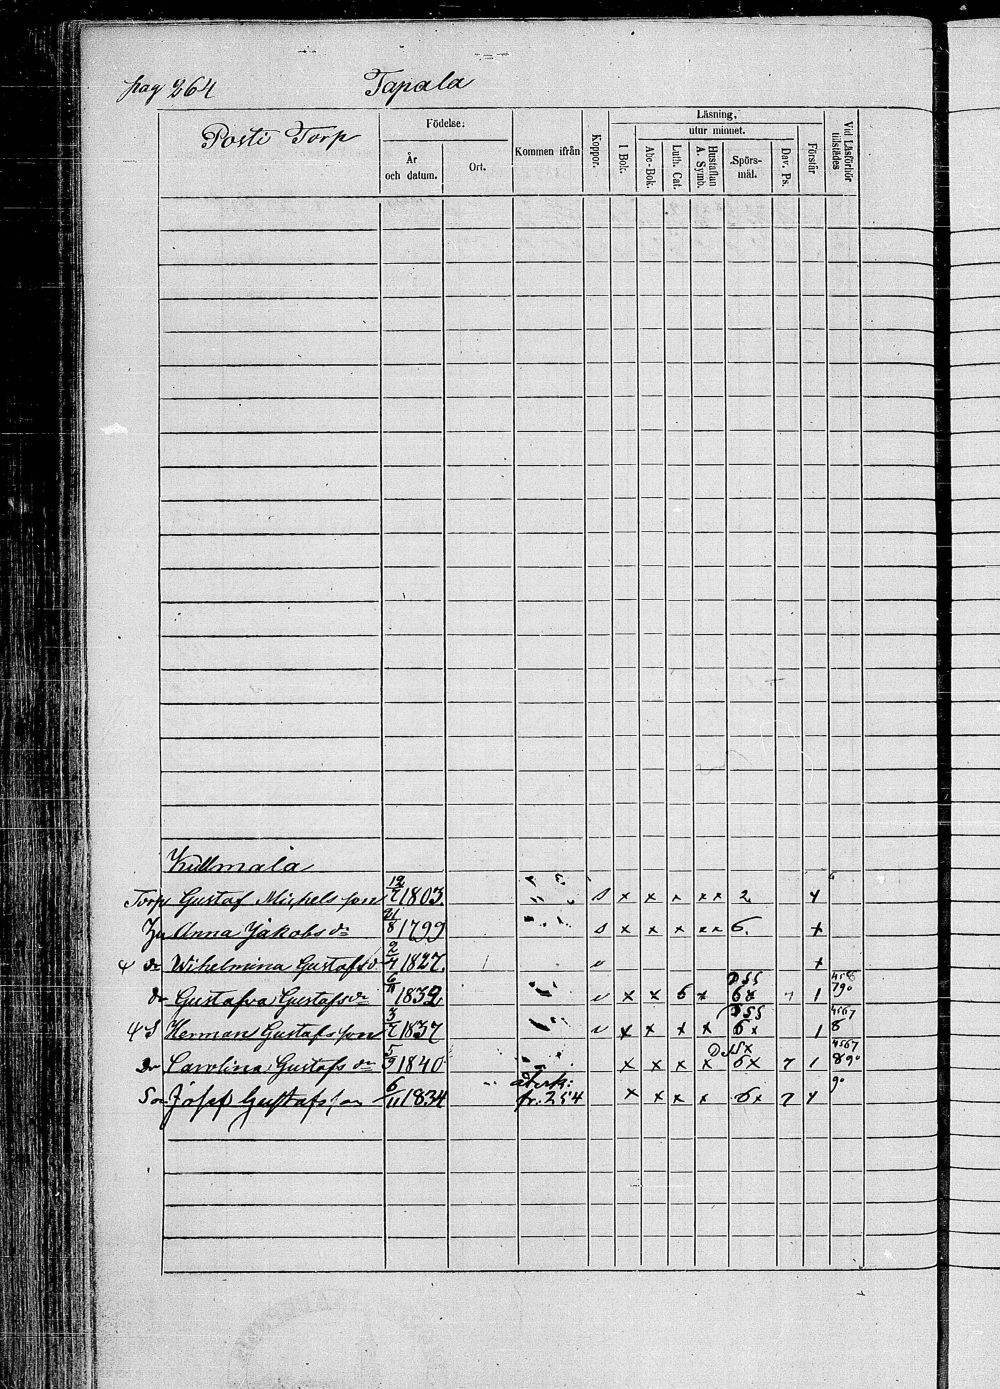 pag 264 Tapala
Posti Torp
Födelse:
År och datum.
Ort.
Kommen ifrån
Koppor.
Läsning,
utur minnet.
I Bok.
Abc-Bok.
Luth. Cat.
Hustaflan A. Symb.
Spörs-mål.
Dav. Ps.
Förstår
Vid Läsförhör tillstädes
Kullmala
Torp Gustaf Michelsson 1803. s x x x xx 2
Hu Anna Jakobs dr 21/8 1799 s x x x xx 6. x
dr Wihelmina Gustafsd 1827. x
dr Gustafva Gustafsdr 1839 x x 6 x 6x 1
S Herman Gustafsson 1837 x x x x 6x 1 8
Dr Carolina Gustafs dr 5/9 1840 x x x x 6x 7 1
Son Josef Gustafsson 6/11 1834 återk: fr. 254 x x x x 6x 7